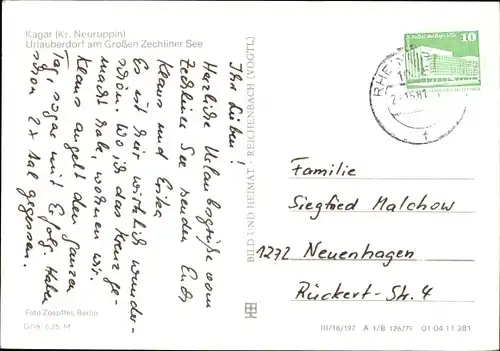 Kagar (Kr. Neuruppin)
Urlauberdorf am Großen Zechliner See
Ihr Lieben!
Herzliche Urlaubsgrüße vom
Zechliner See senden Euch
Klaus und Erika
Es ist hier wirklich wunder-
schön. Wo ich das Kreuz ge-
macht habe, wohnen wir.
Klaus angelt den ganzen
Tag, sogar mit Erfolg. Haben
schon 2x Aal gegessen.
Foto Zoepffel, Berlin
0,25 M
BILD UND HEIMAT REICHENBACH (VOGTL)
10
RHE
Familie
Siegfried Malchow
1272 Neuenhagen
Rückert-Str. 4
III/18/197 A 1/B 126/79 01 04 11 381